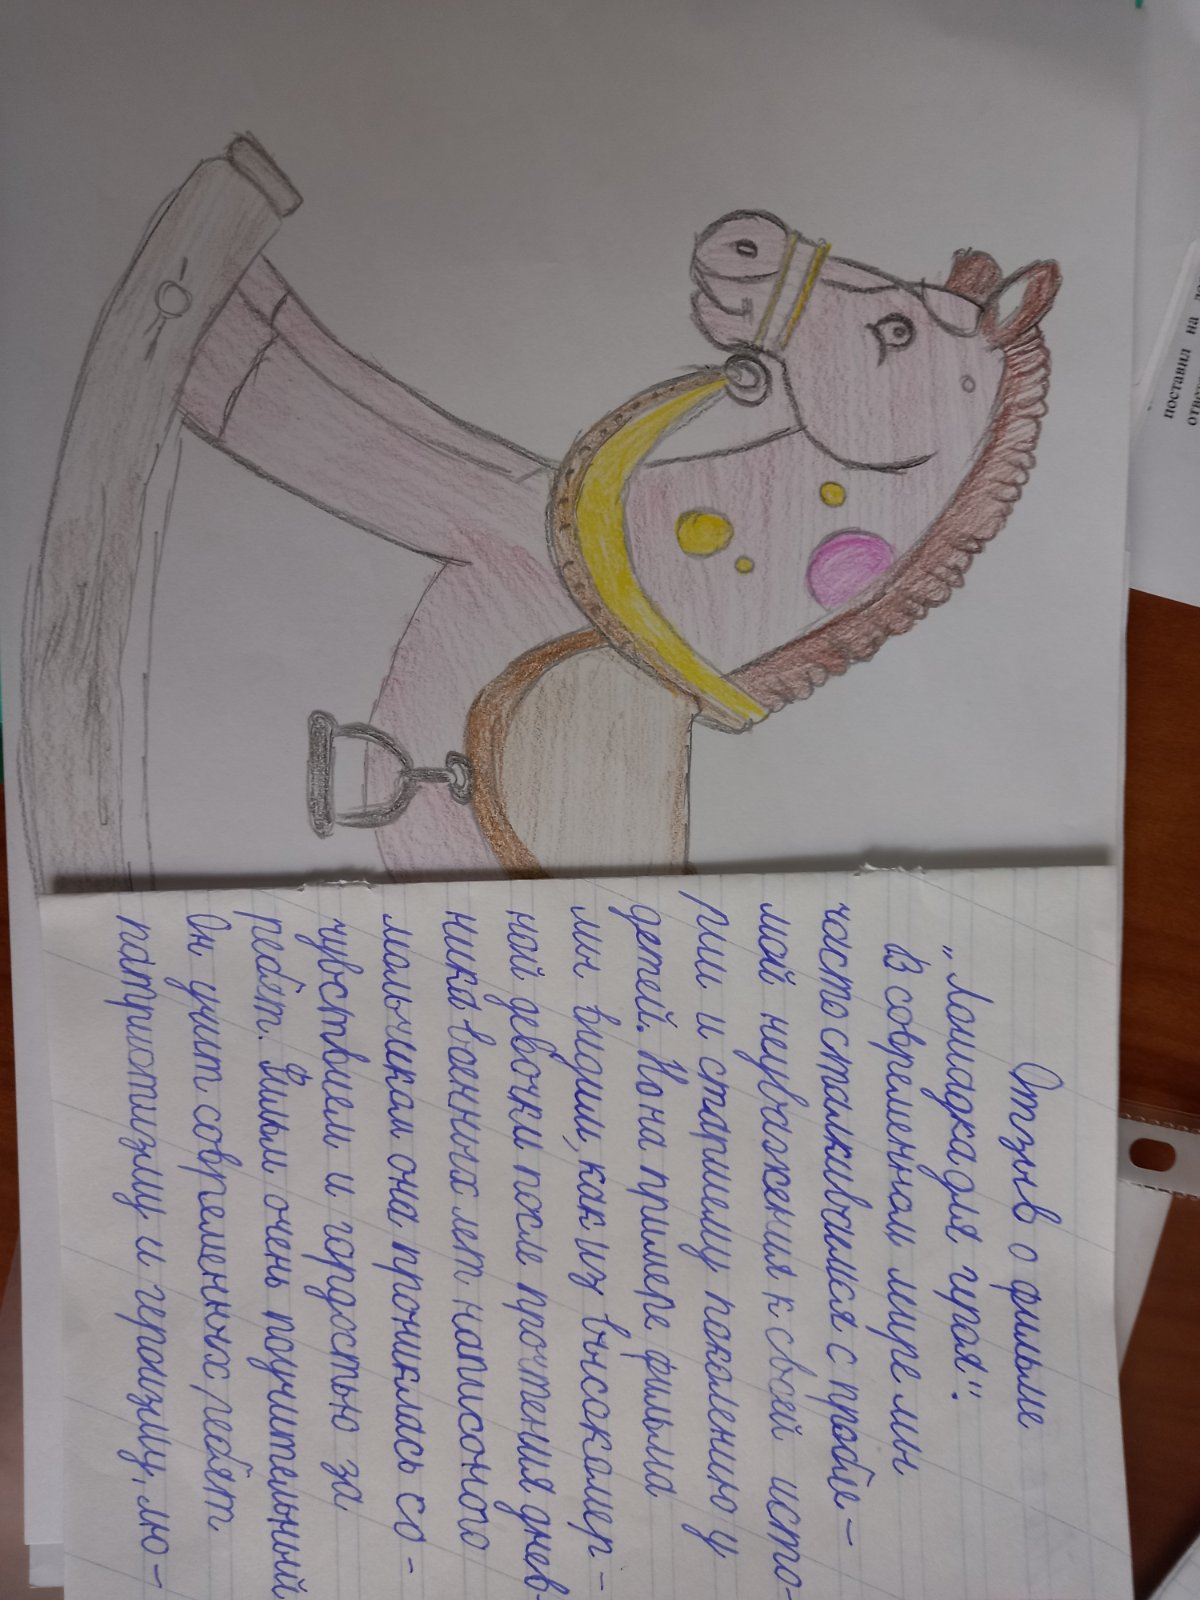 Отзыв о фильме
„Лошадка для героя".
В современном мире мы
часто сталкиваемся с пробле-
мой неуважения к своей исто-
рии и старшему поколению у
детей. Но на примере фильма
мы видим, как из высокомер-
ной девочки после прочтения днев-
ника военных лет написоного
мальчиком она прониклась со-
чувствием и гордостью за
ребят. Фильм очень поучительный
Он учит современных ребят
патриотизму и героизму, лю-
поставил на